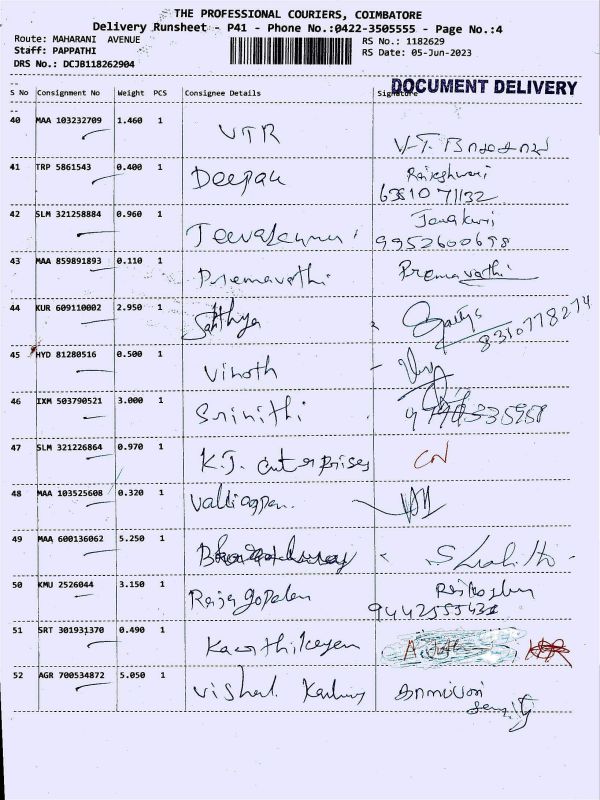 THE PROFESSIONAL COURIERS, COIMBATORE
Delivery Runsheet - P41 - Phone No.:0422-3505555 - Page No.:4
Route: MAHARANI AVENUE
RS No.: 1182629
Staff: PAPPATHI
RS Date: 05-Jun-2023
DRS No.: DCJB118262904
DOCUMENT DELIVERY
S No Consignment No Weight PCS Consignee Details Signature
40 MAA 103232709 1.460 1 VTR
41 TRP 5861543 0.400 1 Deepak Rajeshwari
6381071132
42 SLM 321258884 0.960 1 Jeevakumar
9952600698
43 MAA 859891893 0.110 1 Premavathi Premavathi
44 KUR 609110002 2.950 1 Sathya
8310778274
45 HYD 81280516 0.500 1 Vinoth
46 IXM 503790521 3.000 1 Srinithi
47 SLM 321226864 0.970 1 K.J. enterprises CN
48 MAA 103525608 0.320 1 Valliappan.
49 MAA 600136062 5.250 1
50 KMU 2526044 3.150 1 Rajagopalan
51 SRT 301931370 0.490 1 Karthikeyan
52 AGR 700534872 5.050 1 Vishal